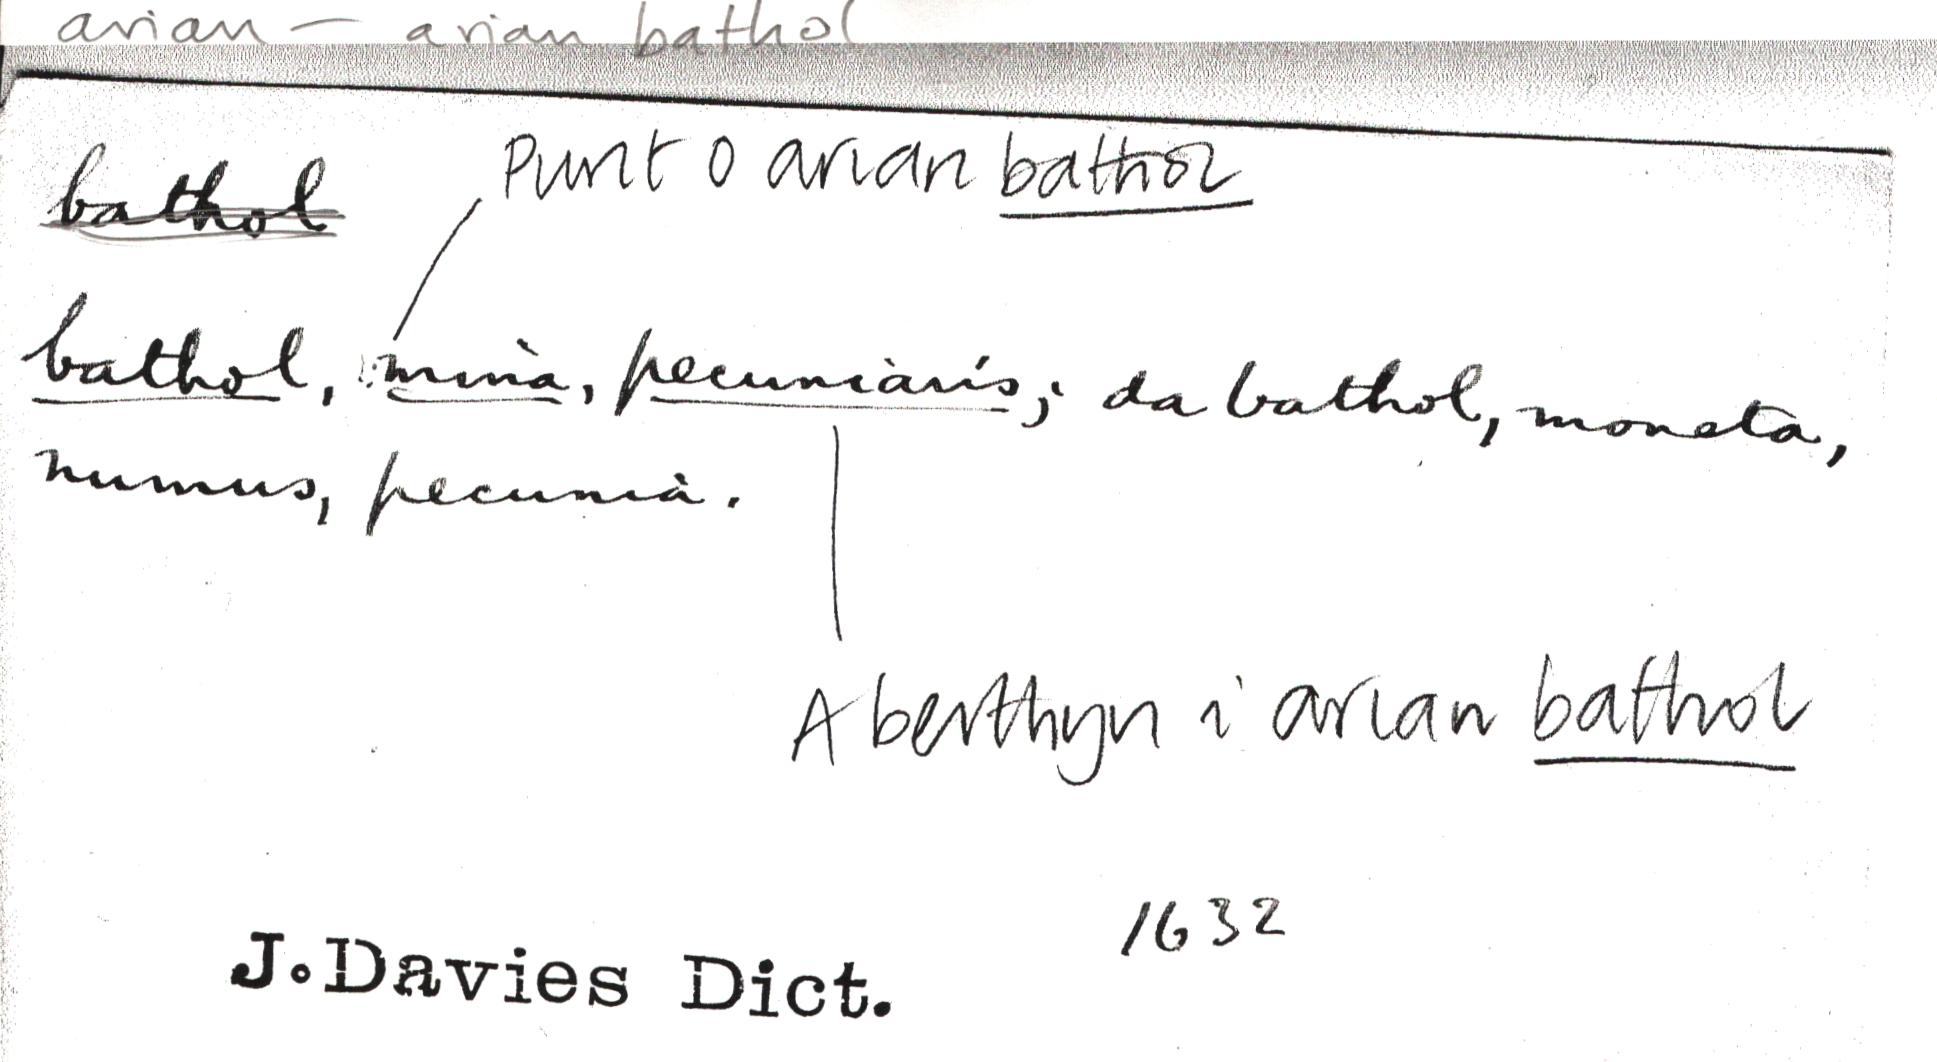 arian — arian bathol
Punt o arian bathol
bathol
bathol, mina, pecuniaris; da bathol, moneta,
numus, pecunia.
A berthyn i arian bathol
1632
J.Davies Dict.